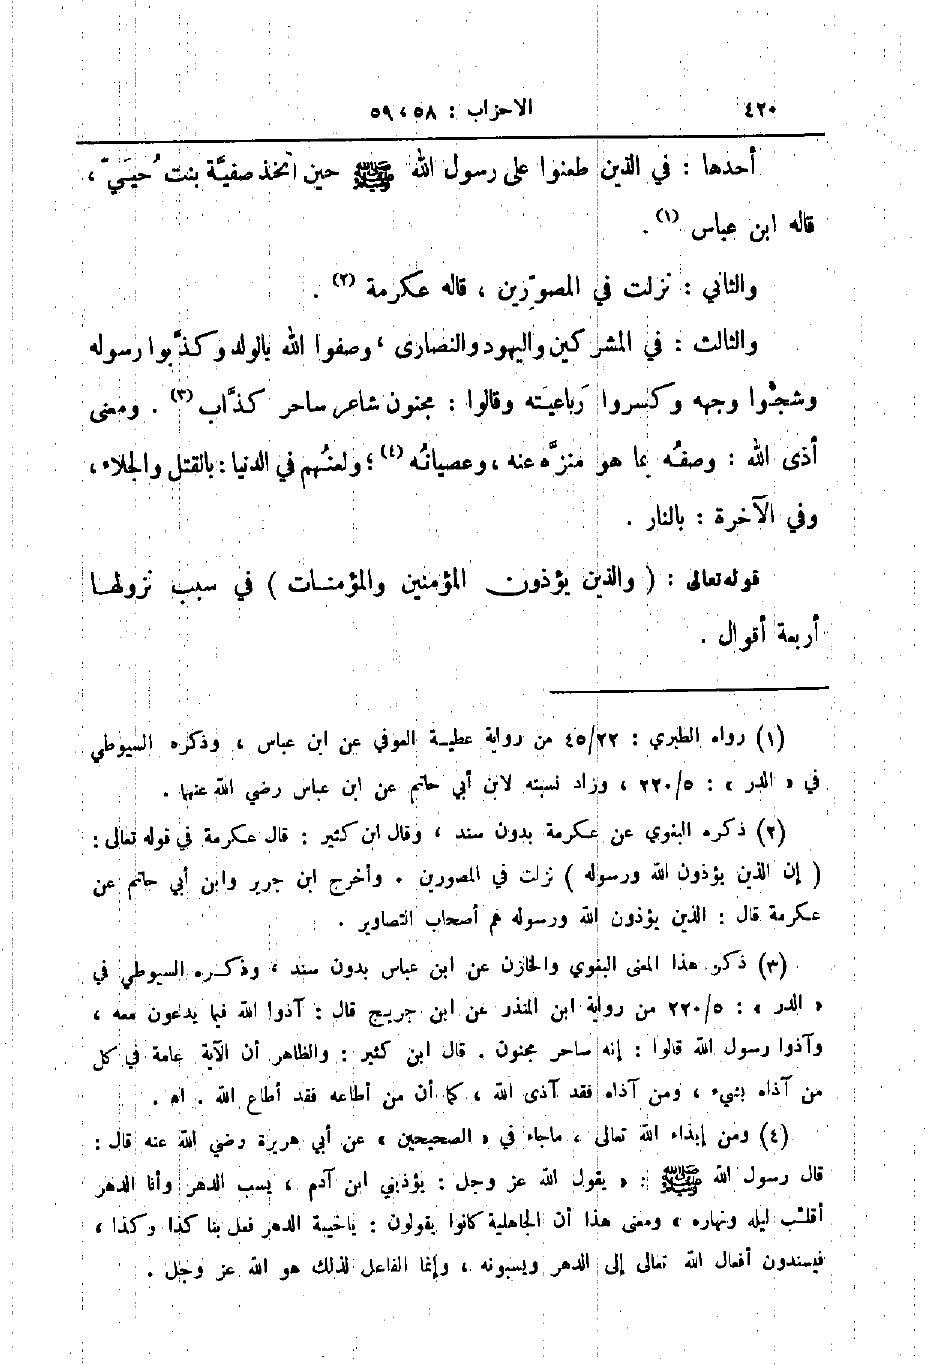 ٤٢٠ الاحزاب : ٥٨ ، ٥٩
أحدها : في الذين طعنوا على رسول الله ﷺ حين اتخذ صفيَّة بنت حُيَيّ ،
قاله ابن عباس (١) .
والثاني : نزلت في المصوّرين ، قاله عكرمة (٢) .
والثالث : في المشركين واليهود والنصارى ، وصفوا الله بالولد وكذَّبوا رسوله
وشجُّوا وجهه وكسروا رَباعيَته وقالوا : مجنون شاعر ساحر كذَّاب (٣) . ومعنى
أذى الله : وصفُه بما هو منزَّه عنه ، وعصيانُه (٤) ؛ ولعنُهم في الدنيا : بالقتل والجلاء ،
وفي الآخرة : بالنار .
قوله تعالى : ( والذين يؤذون المؤمنين والمؤمنات ) في سبب نزولها
أربعة أقوال .
(١) رواه الطبري : ٤٥/٢٢ من رواية عطية العوفي عن ابن عباس ، وذكره السيوطي
في « الدر » : ٢٢٠/٥ ، وزاد نسبته لابن أبي حاتم عن ابن عباس رضي الله عنهما .
(٢) ذكره البغوي عن عكرمة بدون سند ، وقال ابن كثير : قال عكرمة في قوله تعالى :
( إن الذين يؤذون الله ورسوله ) نزلت في المصورين . وأخرج ابن جرير وابن أبي حاتم عن
عكرمة قال : الذين يؤذون الله ورسوله هم أصحاب التصاوير .
(٣) ذكر هذا المعنى البغوي والخازن عن ابن عباس بدون سند ، وذكره السيوطي في
« الدر » : ٢٢٠/٥ من رواية ابن المنذر عن ابن جريج قال : آذوا الله فيما يدعون معه ،
وآذوا رسول الله قالوا : إنه ساحر مجنون . قال ابن كثير : والظاهر أن الآية عامة في كل
من آذاه بشيء ، ومن آذاه فقد آذى الله ، كما أن من أطاعه فقد أطاع الله . اه .
(٤) ومن إيذاء الله تعالى ، ماجاء في « الصحيحين » عن أبي هريرة رضي الله عنه قال :
قال رسول الله ﷺ : « يقول الله عز وجل : يؤذيني ابن آدم ، يسب الدهر وأنا الدهر
أقلّب ليله ونهاره » ومعنى هذا أن الجاهلية كانوا يقولون : ياخيبة الدهر فعل بنا كذا وكذا ،
فيسندون أفعال الله تعالى إلى الدهر ويسبونه ، وإنما الفاعل لذلك هو الله عز وجل .